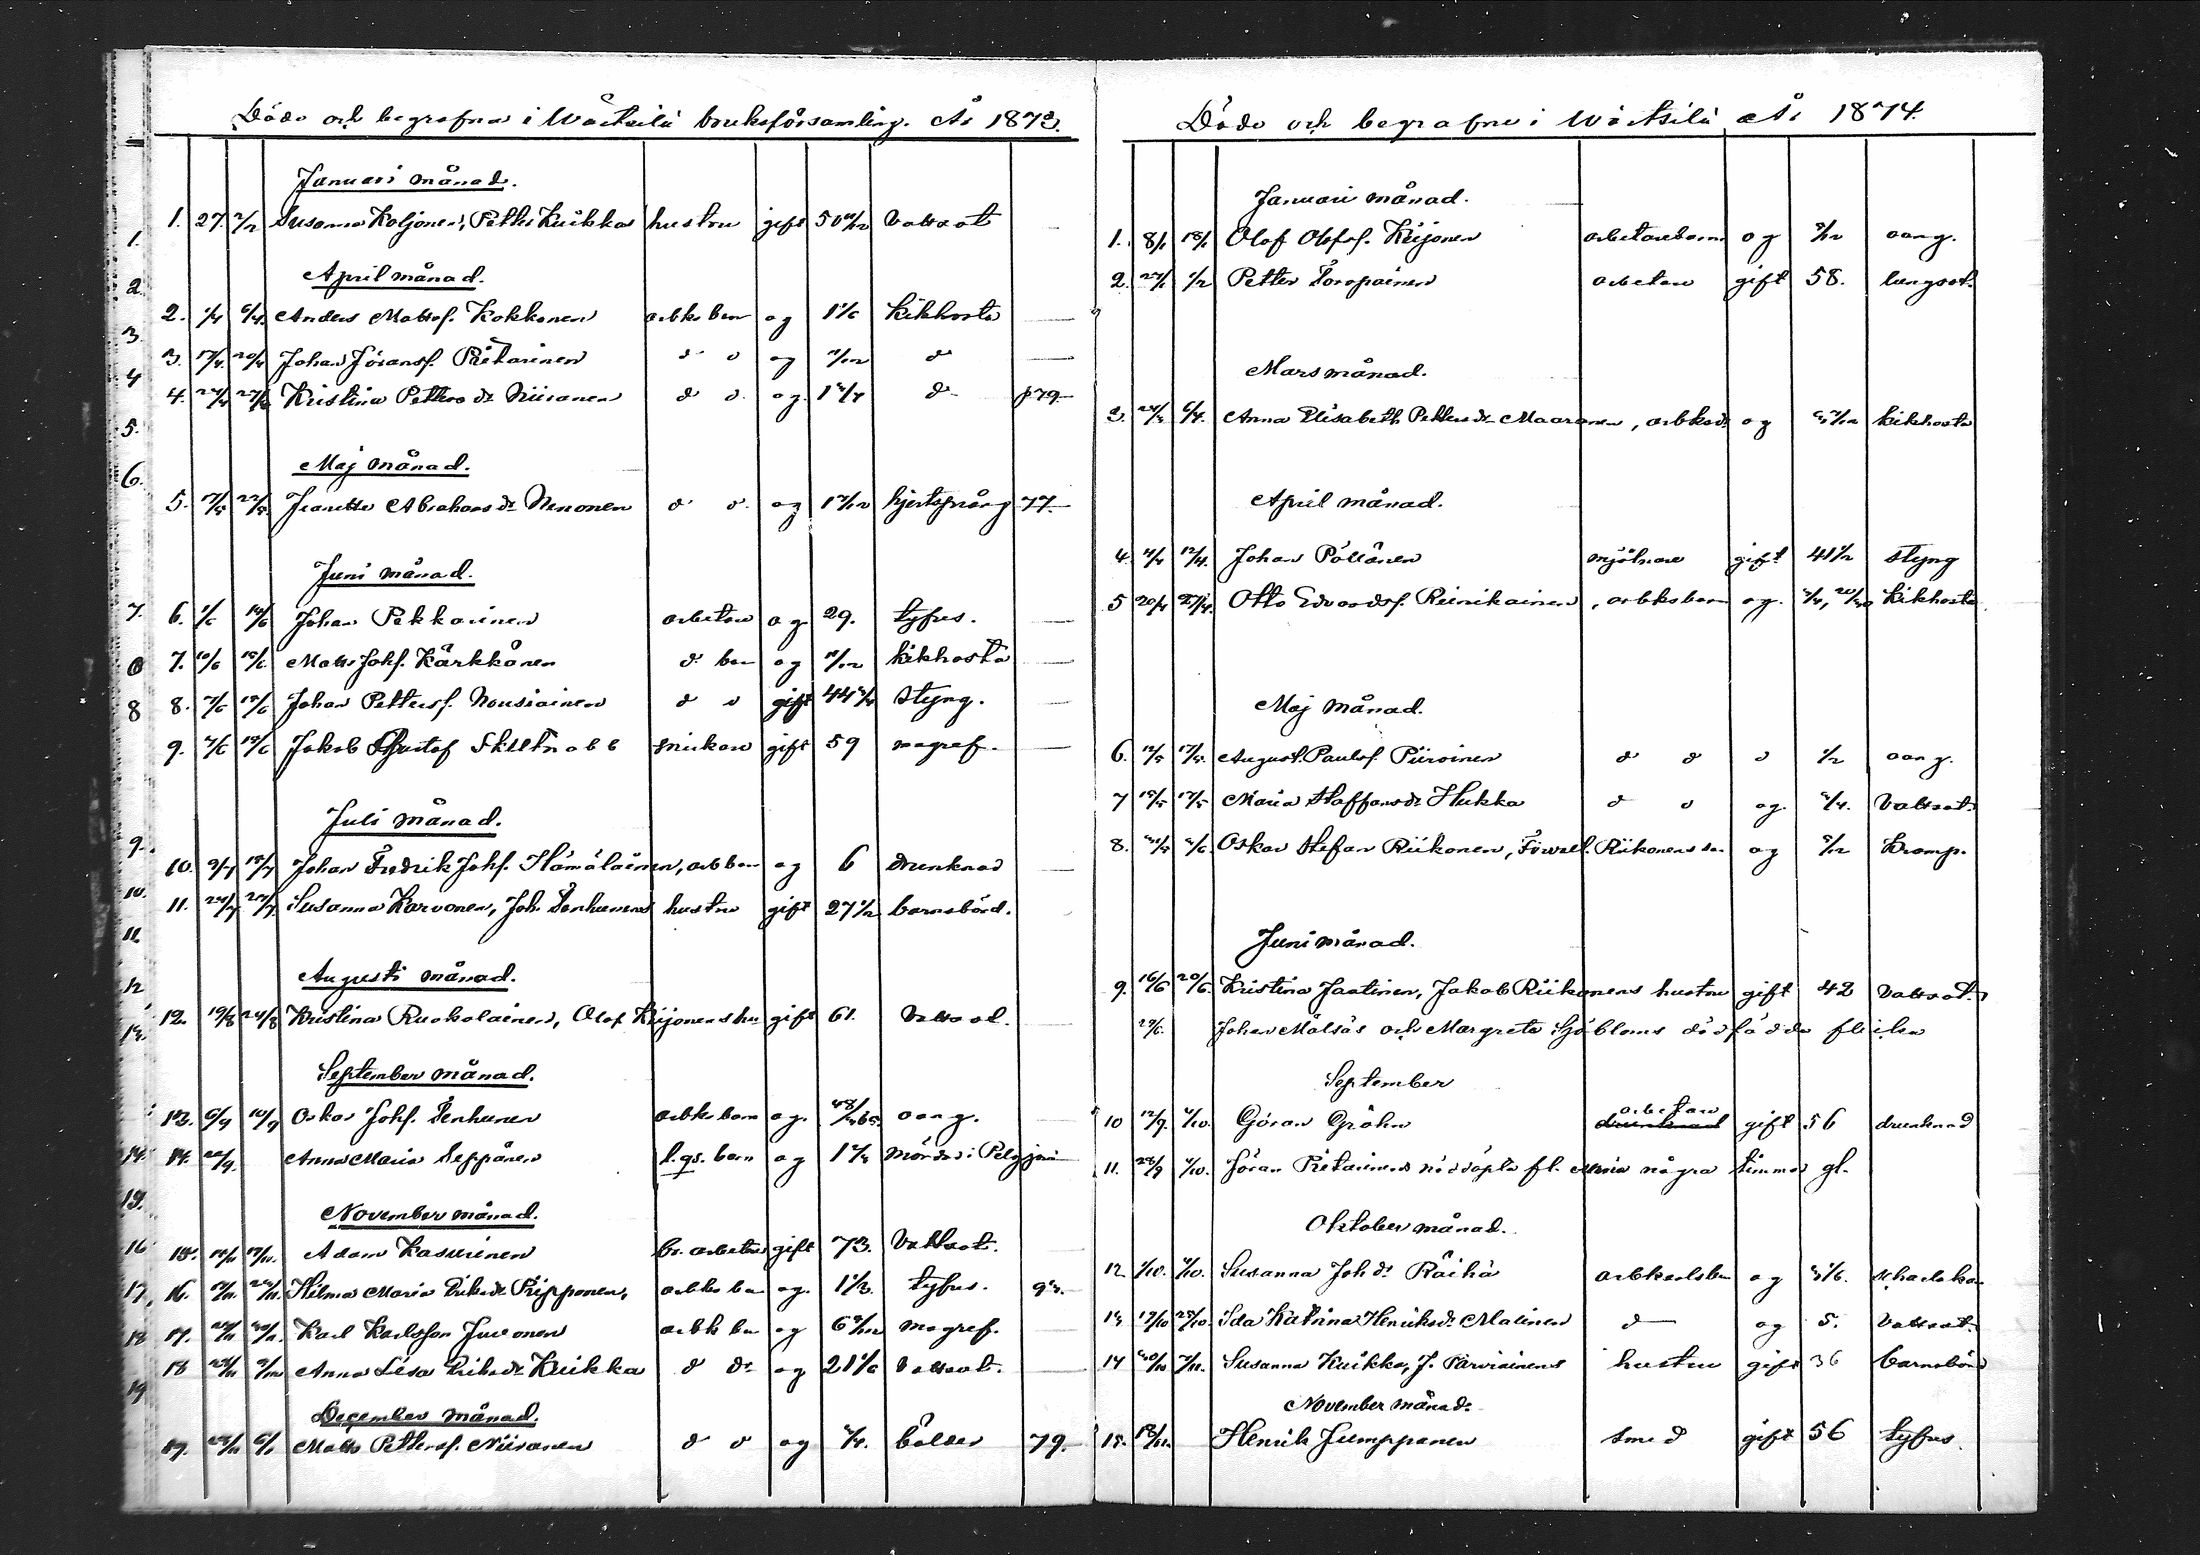 Döde och begrafne i Wärtsilä bruksförsamling. År 1873.
Januari månad.
1. 27. 2/2 Susanna Koljonen, Petter Kuikkas hustru gift 50 11/12 Vattsot
April månad.
2. 1/4 6/4 Anders Mattsf. Kokkonen arbks barn og 1 1/6 kikhosta —
3. 17/4 20/4 Johan Göransf. Pitkarinen d d og 11/12 d —
4. 24/4 27/4 Kristina Petters dr Niiranen d d og 1 3/4 d p 79.
Maj månad.
5. 17/5 22/5 Jeanette Abrahams dr Nenonen d d og 1 7/12 hjertsprång 77.
Juni månad.
6. 1/6 14/6 Johan Pekkarinen arbetare og 29. tyfus. —
7. 10/6 15/6 Matts Johf. Kärkkänen d barn og 11/12 kikhosta —
8. 7/6 15/6 Johan Pettersf. Nousiainen d d gift 44 3/4 styng. —
9. 7/6 15/6 Jakob Gustaf Skiltnabb snickare gift 59 magref. —
Juli månad.
10. 9/7 13/7 Johan Fredrik Johf. Hämäläinen, arb barn og 6 drunknad —
11. 24/7 27/7 Susanna Karvonen, Joh. Tenhunens hustru gift 27 1/2 barnsbörd.
Augusti månad.
12. 19/8 24/8 Kristina Ruokolainen, Olof Kijonens hu gift 61. Vattsot.
September månad.
13. 6/9 10/9 Oskar Johf. Tenhunen arbks barn og. 48/365 oang.
14. 22/9 Anna Maria Seppänen l.gs. barn og mördad i Pelgjärvi
November månad.
15. 14/11 17/11. Adam Kasurinen br. arbetare gift 73. Vattsot.
16. Hilma Maria Eriks dr Piipponen, arbks barn og. 1 1/3. tyfus. 93.
17. Karl Karlsson Juvonen arbk barn og magref. —
18 Anna Lisa Eriks dr Kuikka d dr og 21 1/6 Vattsot. —
December månad.
19. Matts Pettersf. Niiranen d d og 3/4. bölder 79.
Döde och begrafne i Wärtsilä År 1874.
Januari månad.
1. 8/1 18/1 Olof Olofsf. Kijonen arbetarebarn og oang.
2. 27/1 1/2 Petter Toropainen arbetare gift 58. lungsot.
Mars månad.
3. 6/4. Anna Elisabeth Petters dr Maaranen, arbks dr og kikhosta
April månad.
4. 12/4. Johan Pöllänen mjölnare gift 41 1/2 styng
5 20/4 Otto Edvardsf. Reinikainen, arbksbarn og. kikhosta
Maj månad.
6. 12/5 17/5. August Paulsf. Piiroinen d d d 1/2 oang.
7 15/5 17/5 Maria Staffans dr Hukka d d og. 3/4. Vattsot.
8. Oskar Stefan Riikonen, Förvalt. Riikonens son og Kramp.
Juni månad.
9. 16/6 20/6. Kristina Jaatinen, Jakob Riikonens hustru gift 42 Vattsot.
29/6. Johan Målsäs och Margreta Sjöbloms dödfödda flicka
September
10 12/9. 4/10. Göran Gröhn arbetare gift 56 drunknad
11. 28/9 4/10. Göran Pitkarinens nöddöpta fl. Maria några timmar gl.
Oktober månad.
12 1/10. 4/10. Susanna Joh dr Räihä arbkarlsbarn og 3 1/6. scharlakan
13 17/10 25/10 Ida Katrina Henriks dr Malinen d og 5. Vattsot.
14 30/10 7/11. Susanna Kuikka, J. Parviainens hustru gift 36 barnsbörd
November månad.
15. Henrik Jumppanen smed gift 56 tyfus.